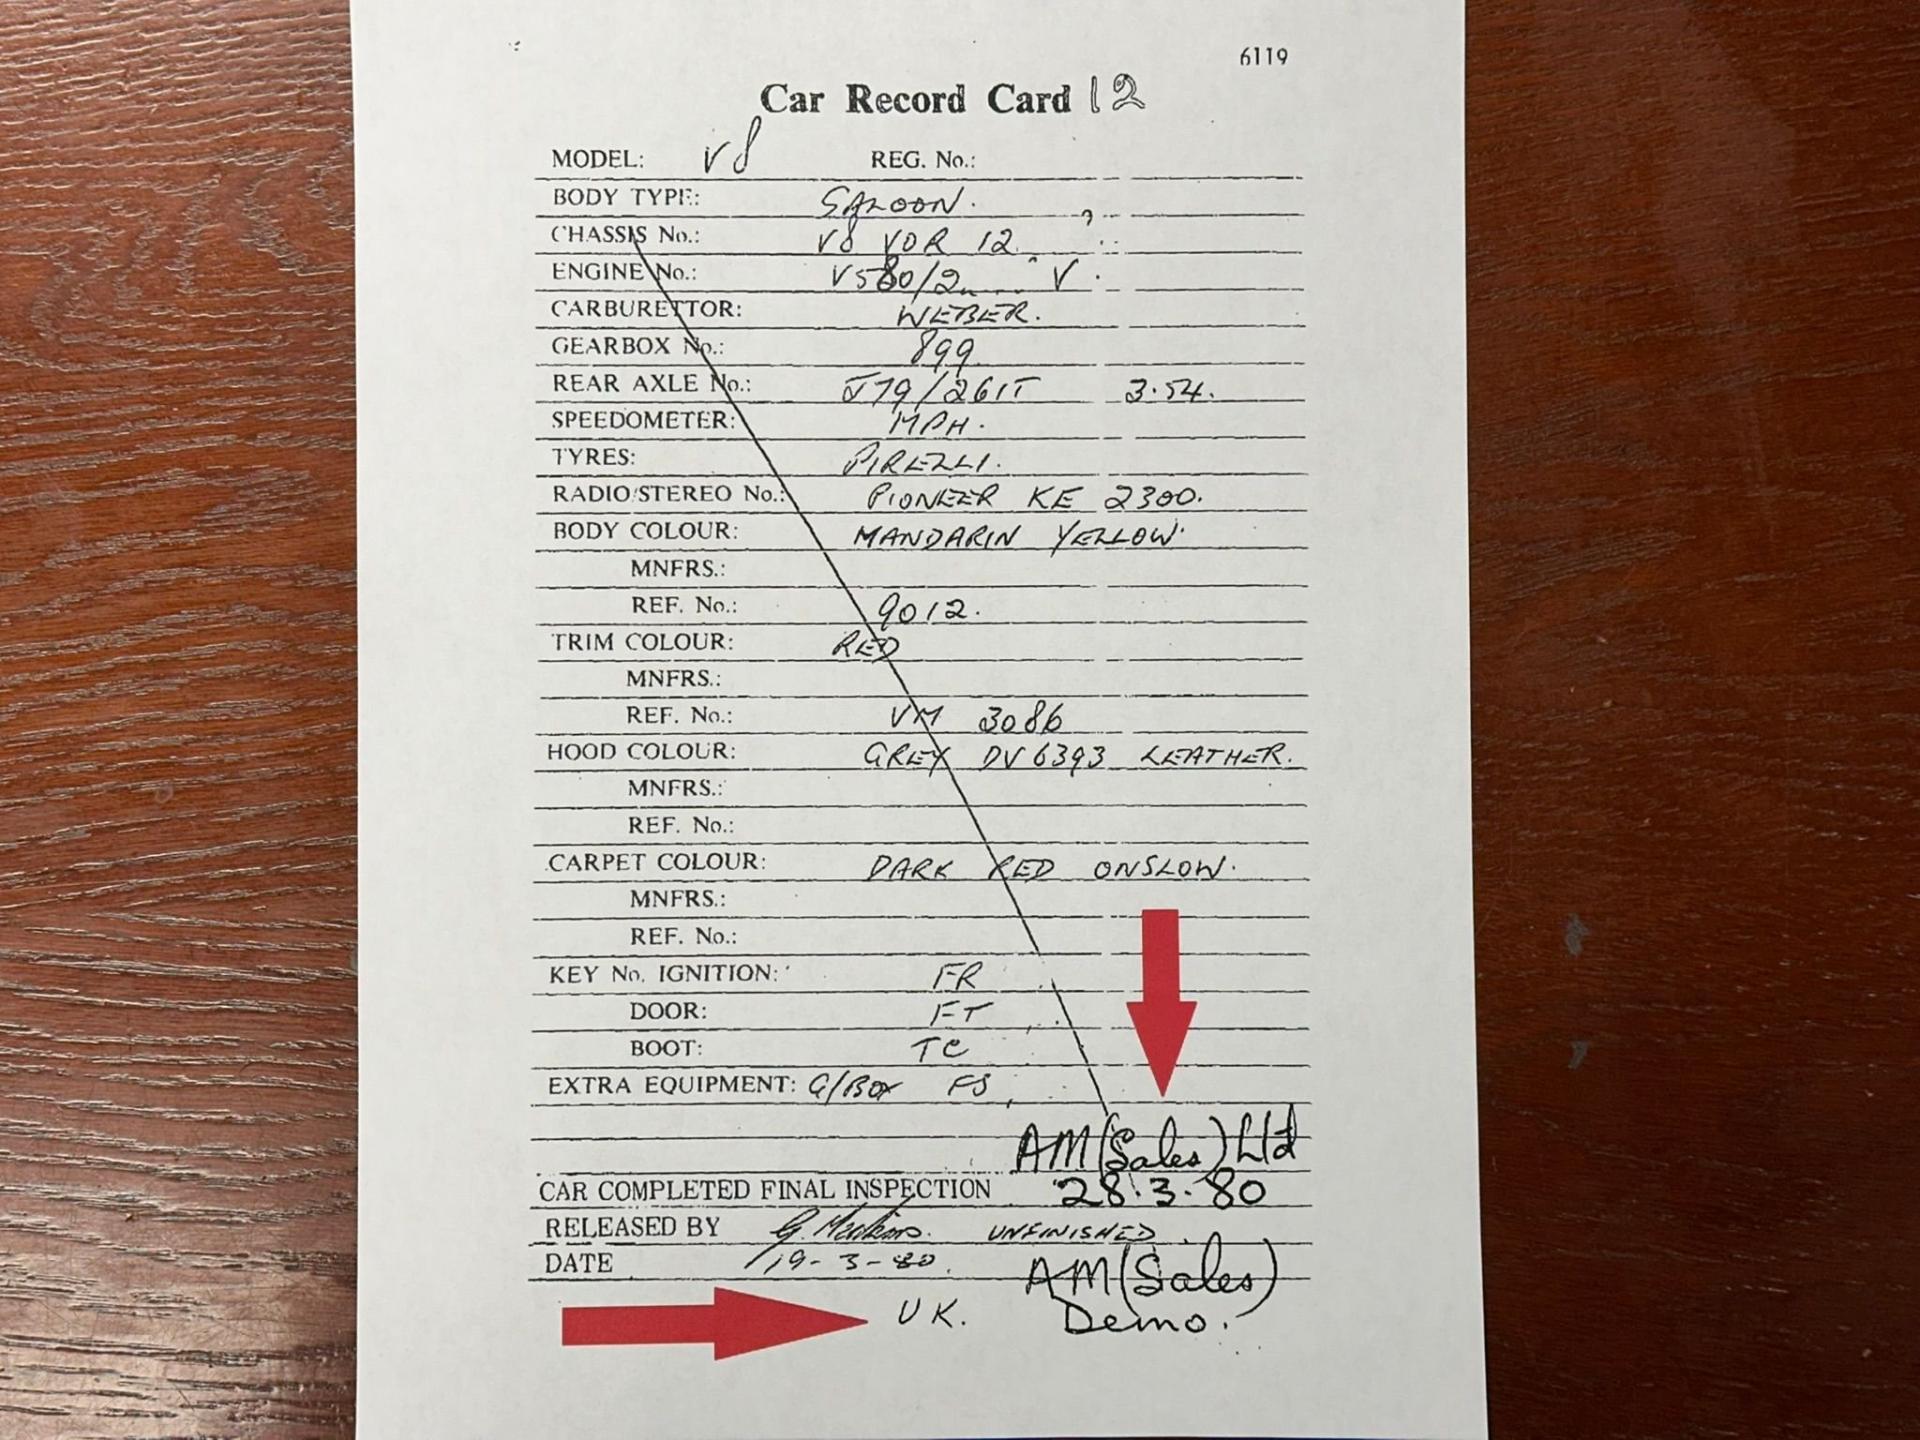 6119
Car Record Card 12
MODEL: V8 REG. No.:
BODY TYPE: SALOON.
CHASSIS No.: V8 VOR 12
ENGINE No.: V580/2 V
CARBURETTOR: WEBER.
GEARBOX No.: 899
REAR AXLE No.: J79/261T 3.54.
SPEEDOMETER: MPH.
TYRES: PIRELLI.
RADIO/STEREO No.: PIONEER KE 2300.
BODY COLOUR: MANDARIN YELLOW.
MNFRS.:
REF. No.: 9012.
TRIM COLOUR: RED
MNFRS.:
REF. No.: VM 3086
HOOD COLOUR: GREY DV6393 LEATHER.
MNFRS.:
REF. No.:
CARPET COLOUR: DARK RED ONSLOW.
MNFRS.:
REF. No.:
KEY No. IGNITION: FR
DOOR: FT
BOOT: TC
EXTRA EQUIPMENT: G/BOX FS
AM (Sales) Ltd
CAR COMPLETED FINAL INSPECTION 28.3.80
RELEASED BY G. UNFINISHED
DATE 19-3-80. AM (Sales)
UK. Demo.